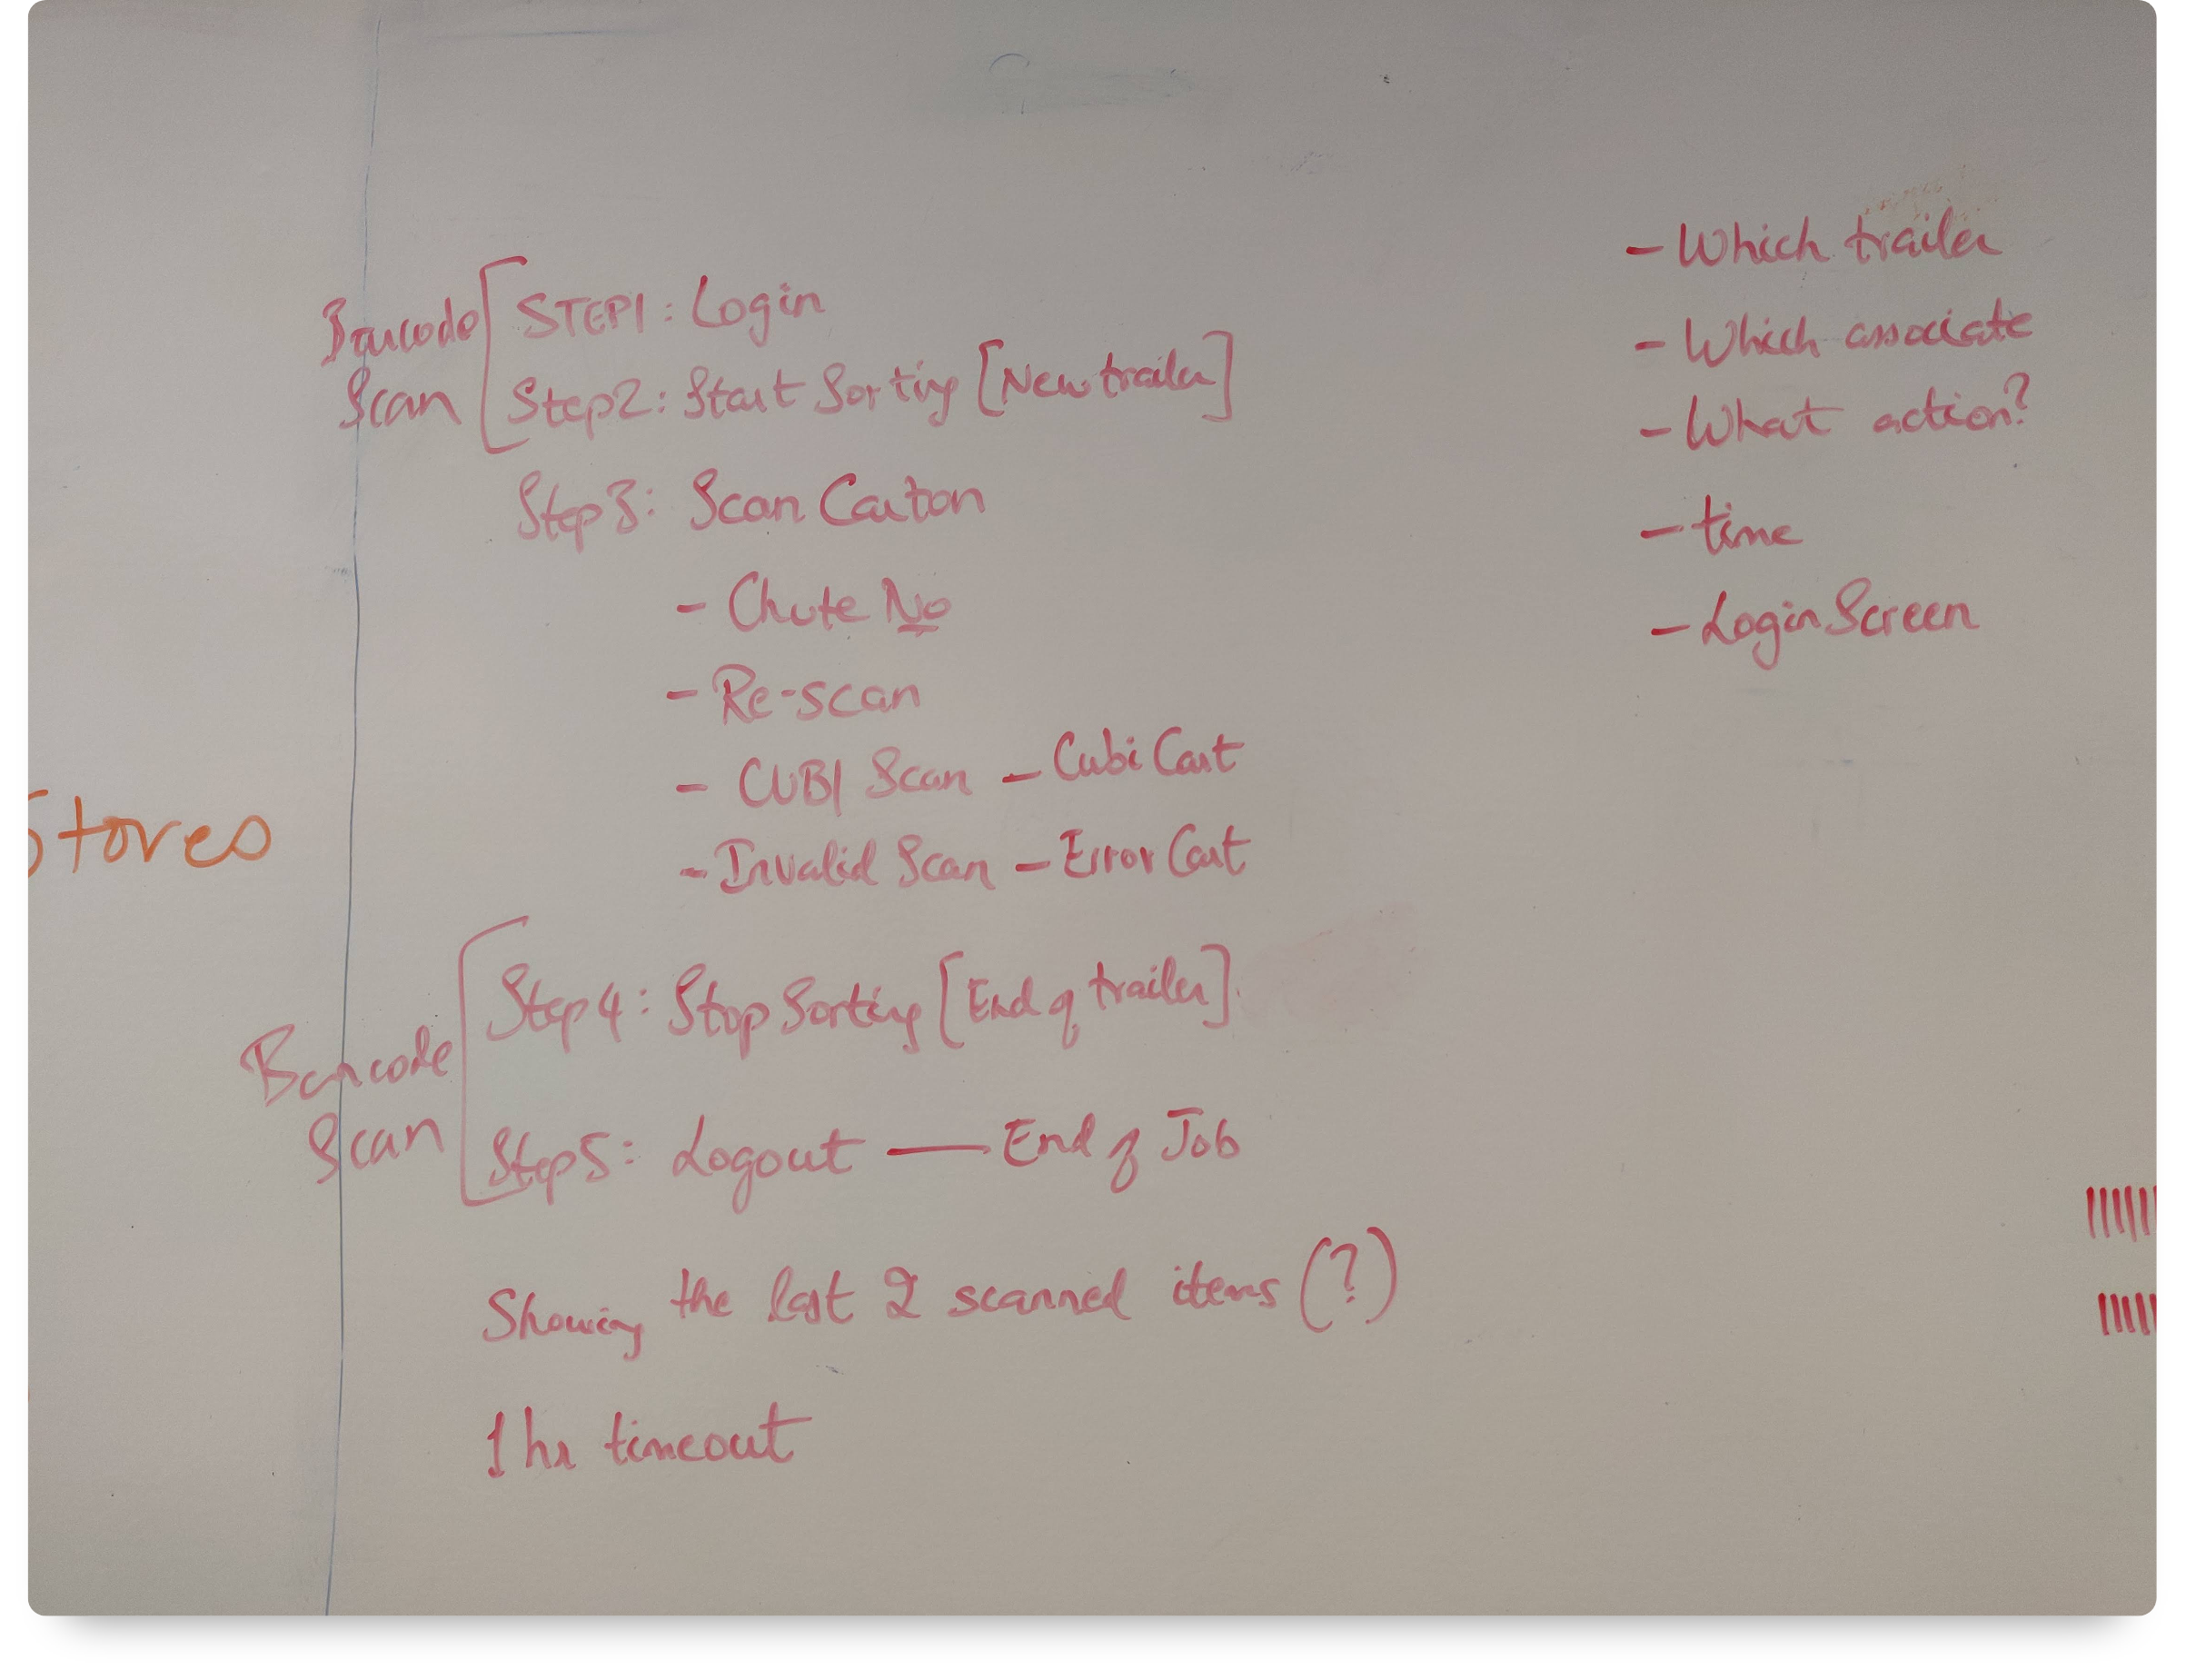 Barcode Scan
STEP1: Login
Step2: Start Sorting [New trailer]
Step3: Scan Carton
- Chute No
- Re-scan
- CUBI Scan - Cubi Cart
- Invalid Scan - Error Cart
Barcode Scan
Step4: Stop Sorting [End of trailer]
Step5: Logout — End of Job
Showing the last 2 scanned items (?)
1 hr timeout
- Which trailer
- Which associate
- What action?
- time
- Login Screen
Stores